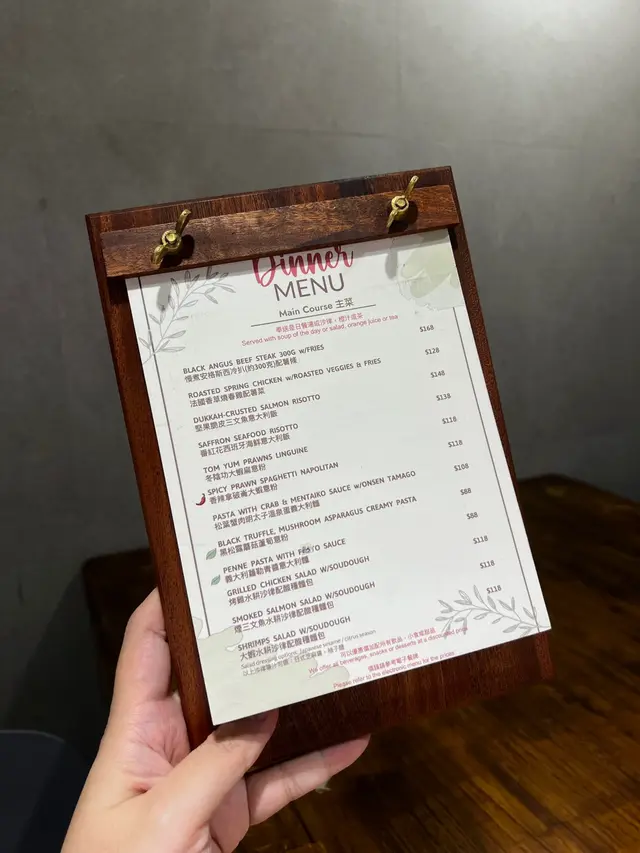 Dinner
MENU
Main Course 主菜
Served with soup of the day or salad, orange juice or tea
BLACK ANGUS BEEF STEAK 300G w/FRIES $168
慢煮安格斯西冷扒(約300克)配薯條
ROASTED SPRING CHICKEN w/ROASTED VEGGIES & FRIES $128
法國香草燒春雞配薯菜
DUKKAH-CRUSTED SALMON RISOTTO $148
堅果脆皮三文魚意大利飯
SAFFRON SEAFOOD RISOTTO $138
番紅花西班牙海鮮意大利飯
TOM YUM PRAWNS LINGUINE $118
冬陰功大蝦扁意粉
SPICY PRAWN SPAGHETTI NAPOLITAN $118
香辣拿破崙大蝦意粉
PASTA WITH CRAB & MENTAIKO SAUCE w/ONSEN TAMAGO $108
松葉蟹肉明太子溫泉蛋意大利麵
BLACK TRUFFLE, MUSHROOM ASPARAGUS CREAMY PASTA $88
黑松露蘑菇蘆筍意粉
PENNE PASTA WITH PESTO SAUCE $88
義大利羅勒青醬意大利麵
GRILLED CHICKEN SALAD W/SOUDOUGH $118
烤雞水耕沙律配酸種麵包
SMOKED SALMON SALAD W/SOUDOUGH $118
煙三文魚水耕沙律配酸種麵包
SHRIMPS SALAD W/SOUDOUGH $118
大蝦水耕沙律配酸種麵包
Salad dressing options: Japanese sesame / Citrus season
可以優惠價加配所有飲品、小食或甜品
We offer all beverages, snacks or desserts at a discounted price
價錢請參考電子餐牌
Please refer to the electronic menu for the prices